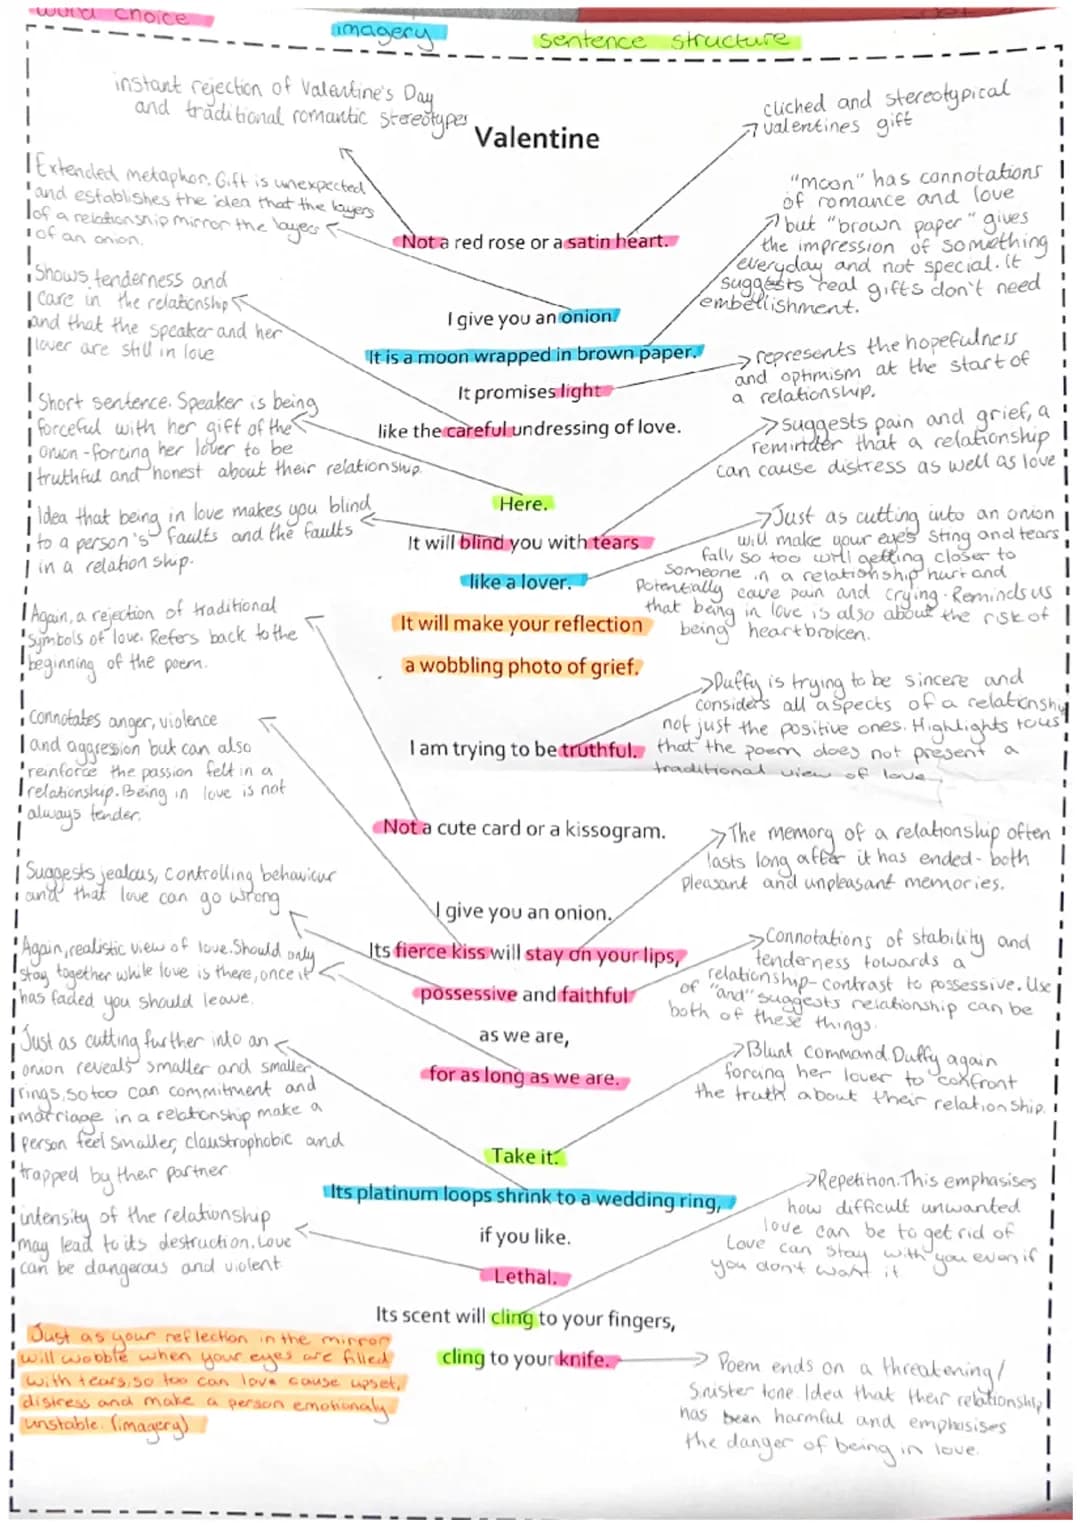 word choice
imagery
sentence structure
instant rejection of Valentine's Day
and traditional romantic stereotypes
cliched and stereotypical
valentines gift
Valentine
Extended metaphor. Gift is unexpected
and establishes the idea that the layers
of a relationship mirror the layers
of an onion.
"moon" has connotations
of romance and love
but "brown paper" gives
the impression of something
everyday and not special. It
suggests real gifts don't need
embellishment.
Not a red rose or a satin heart.
Shows tenderness and
care in the relationship
and that the speaker and her
lover are still in love
I give you an onion.
It is a moon wrapped in brown paper.
It promises light
like the careful undressing of love.
represents the hopefulness
and optimism at the start of
a relationship.
Short sentence. Speaker is being
forceful with her gift of the
onion - forcing her lover to be
truthful and honest about their relationship.
Suggests pain and grief, a
reminder that a relationship
can cause distress as well as love
Here.
It will blind you with tears
like a lover.
It will make your reflection
a wobbling photo of grief.
Idea that being in love makes you blind
to a person's faults and the faults
in a relationship.
Just as cutting into an onion
will make your eyes sting and tears
fall, so too will getting closer to
someone in a relationship hurt and
potentially cause pain and crying. Reminds us
that being in love is also about the risk of
being heartbroken.
Again, a rejection of traditional
symbols of love. Refers back to the
beginning of the poem.
Duffy is trying to be sincere and
considers all aspects of a relationship
not just the positive ones. Highlights to us
that the poem does not present a
traditional view of love.
I am trying to be truthful.
Connotates anger, violence
and aggression but can also
reinforce the passion felt in a
relationship. Being in love is not
always tender.
Not a cute card or a kissogram.
The memory of a relationship often
lasts long after it has ended - both
pleasant and unpleasant memories.
Suggests jealous, controlling behaviour
and that love can go wrong
I give you an onion.
Its fierce kiss will stay on your lips,
possessive and faithful
as we are,
for as long as we are.
Again, realistic view of love. Should only
stay together while love is there, once it
has faded you should leave.
Connotations of stability and
tenderness towards a
relationship - contrast to possessive. Use
of "and" suggests relationship can be
both of these things.
Just as cutting further into an
onion reveals smaller and smaller
rings, so too can commitment and
marriage in a relationship make a
person feel smaller, claustrophobic and
trapped by their partner
Blunt command. Duffy again
forcing her lover to confront
the truth about their relationship.
Take it.
Its platinum loops shrink to a wedding ring,
if you like.
Lethal.
Its scent will cling to your fingers,
cling to your knife.
Repetition. This emphasises
how difficult unwanted
love can be to get rid of
Love can stay with you even if
you don't want it
intensity of the relationship
may lead to its destruction. Love
can be dangerous and violent
Just as your reflection in the mirror
will wobble when your eyes are filled
with tears, so too can love cause upset,
distress and make a person emotionaly
unstable. (imagery)
Poem ends on a threatening/
sinister tone. Idea that their relationship
has been harmful and emphasises
the danger of being in love.